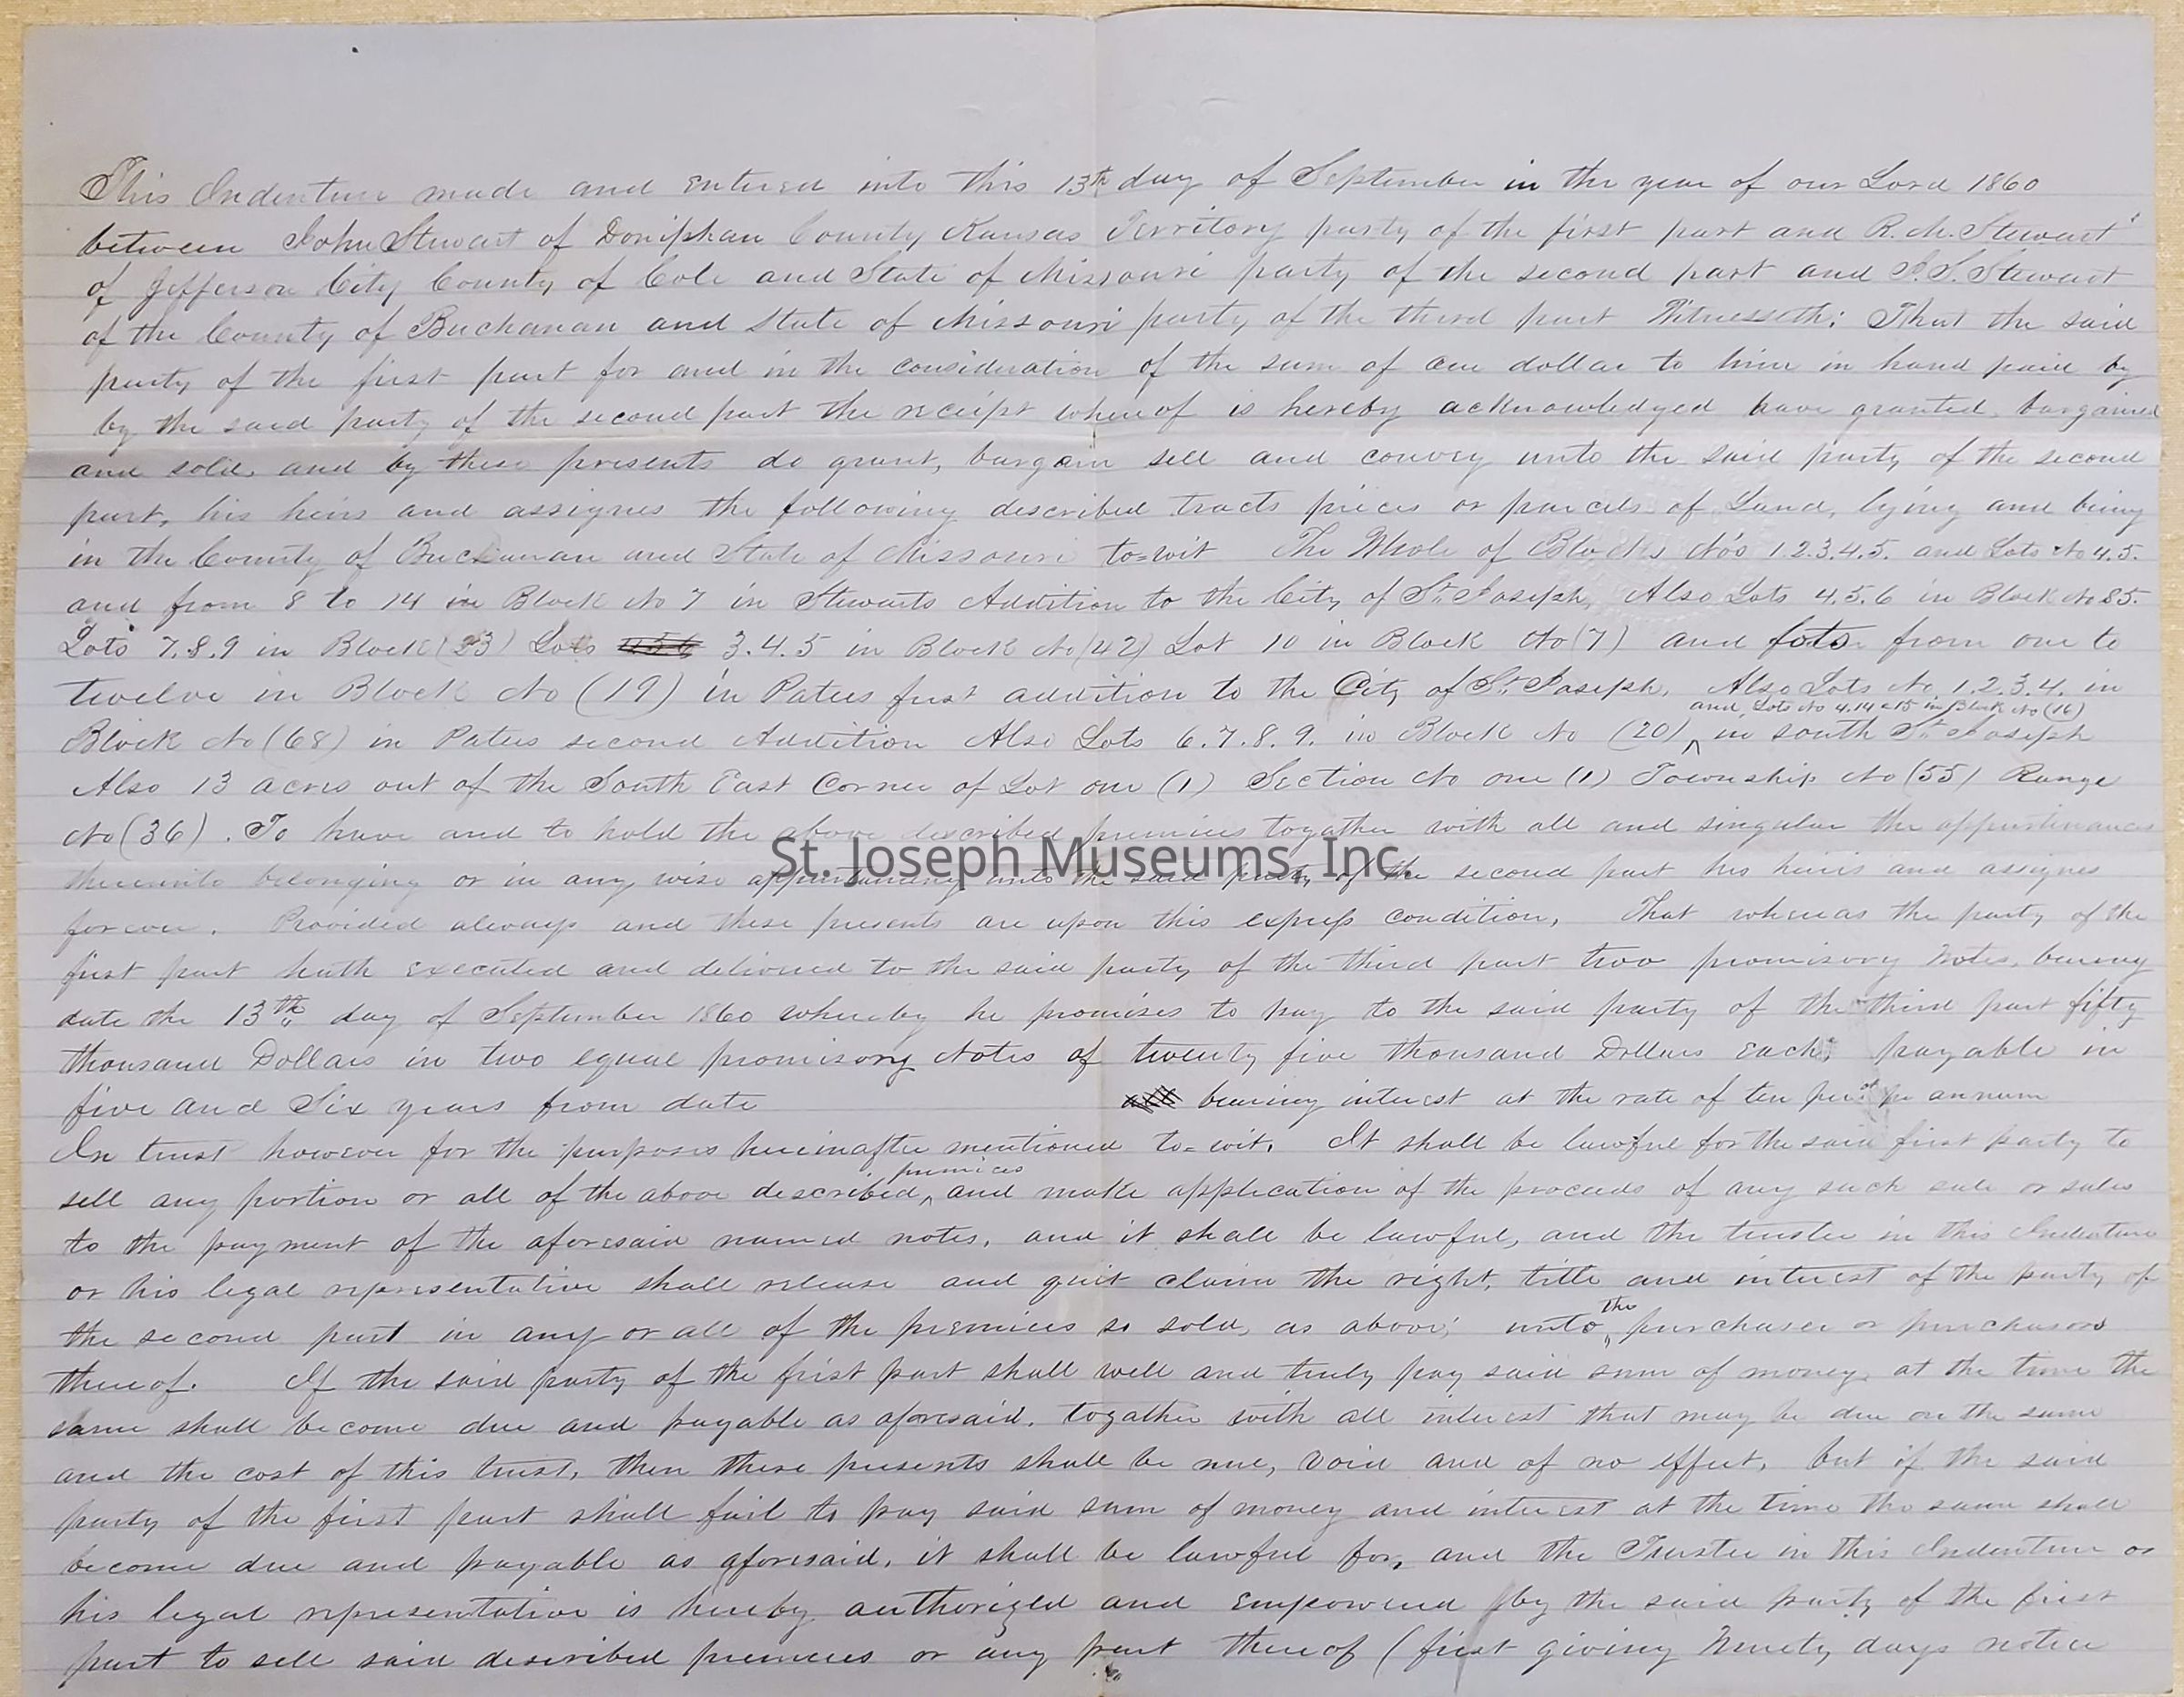 This Indenture made and entered into this 13th day of September in the year of our Lord 1860
between John Stewart of Doniphan County Kansas Territory party of the first part and R. M. Stewart
of Jefferson City County of Cole and State of Missouri party of the second part and J. S. Stewart
of the County of Buchanan and State of Missouri party of the third part Witnesseth: That the said
party of the first part for and in the consideration of the sum of one dollar to him in hand paid by
by the said party of the second part the receipt whereof is hereby acknowledged have granted bargained
and sold, and by these presents do grant, bargain sell and convey unto the said party of the second
part, his heirs and assignes the following described tracts pieces or parcels of Land, lying and being
in the County of Buchanan and State of Missouri to=wit The Whole of Blocks No's 1.2.3.4.5. and Lots No 4.5.
and from 8 to 14 in Block No 7 in Stewarts Addition to the City of St. Joseph, Also Lots 4.5.6 in Block No 85.
Lots 7.8.9 in Block (33) Lots 3.4.5 in Block No (42) Lot 10 in Block No (7) and Lots from one to
twelve in Block No (19) in Patees first addition to the City of St. Joseph, Also Lots No. 1.2.3.4. in
and Lots No 4.14 & 15 in Block No (16)
Block No (68) in Patees second Addition Also Lots 6.7.8.9. in Block No (20) ^ in south St. Joseph
Also 13 acres out of the South East Corner of Lot one (1) Section No one (1) Township No (55) Range
No (36). To have and to hold the above described premises togather with all and singular the appurtinances
thereunto belonging or in any wise appertaining unto the said party of the second part his heirs and assignes
forever. Provided always and these presents are upon this express condition, That whereas the party of the
first part hath executed and delivered to the said party of the third part two promisory Notes, bearing
date the 13th day of September 1860 whereby he promises to pay to the said party of the third part fifty
thousand Dollars in two equal promisory Notes of twenty five thousand Dollars each, payable in
five and Six years from date bearing interest at the rate of ten per ct pr annum
In trust however for the purposes hereinafter mentioned to=wit. It shall be lawful for the said first party to
premices
sell any portion or all of the above described, ^ and make application of the proceeds of any such sale or sales
to the payment of the aforesaid named notes, and it shall be lawful, and the trustee in this Indenture
or his legal representative shall release and quit claim the right, title and interest of the party of
the
the second part in any or all of the premices so sold, as above, unto ^ purchaser or purchasers
thereof. If the said party of the first part shall well and truly pay said sum of money, at the time the
same shall become due and payable as aforesaid, togather with all interest that may be due on the same
and the cost of this trust, then these presents shall be null, void and of no effect, but if the said
party of the first part shall fail to pay said sum of money and interest at the time the same shall
become due and payable as aforesaid, it shall be lawful for, and the Trustee in this Indenture or
his legal representative is hereby authorized and empowered by the said party of the first
part to sell said described premices or any part thereof (first giving Ninety days notice
St. Joseph Museums, Inc.